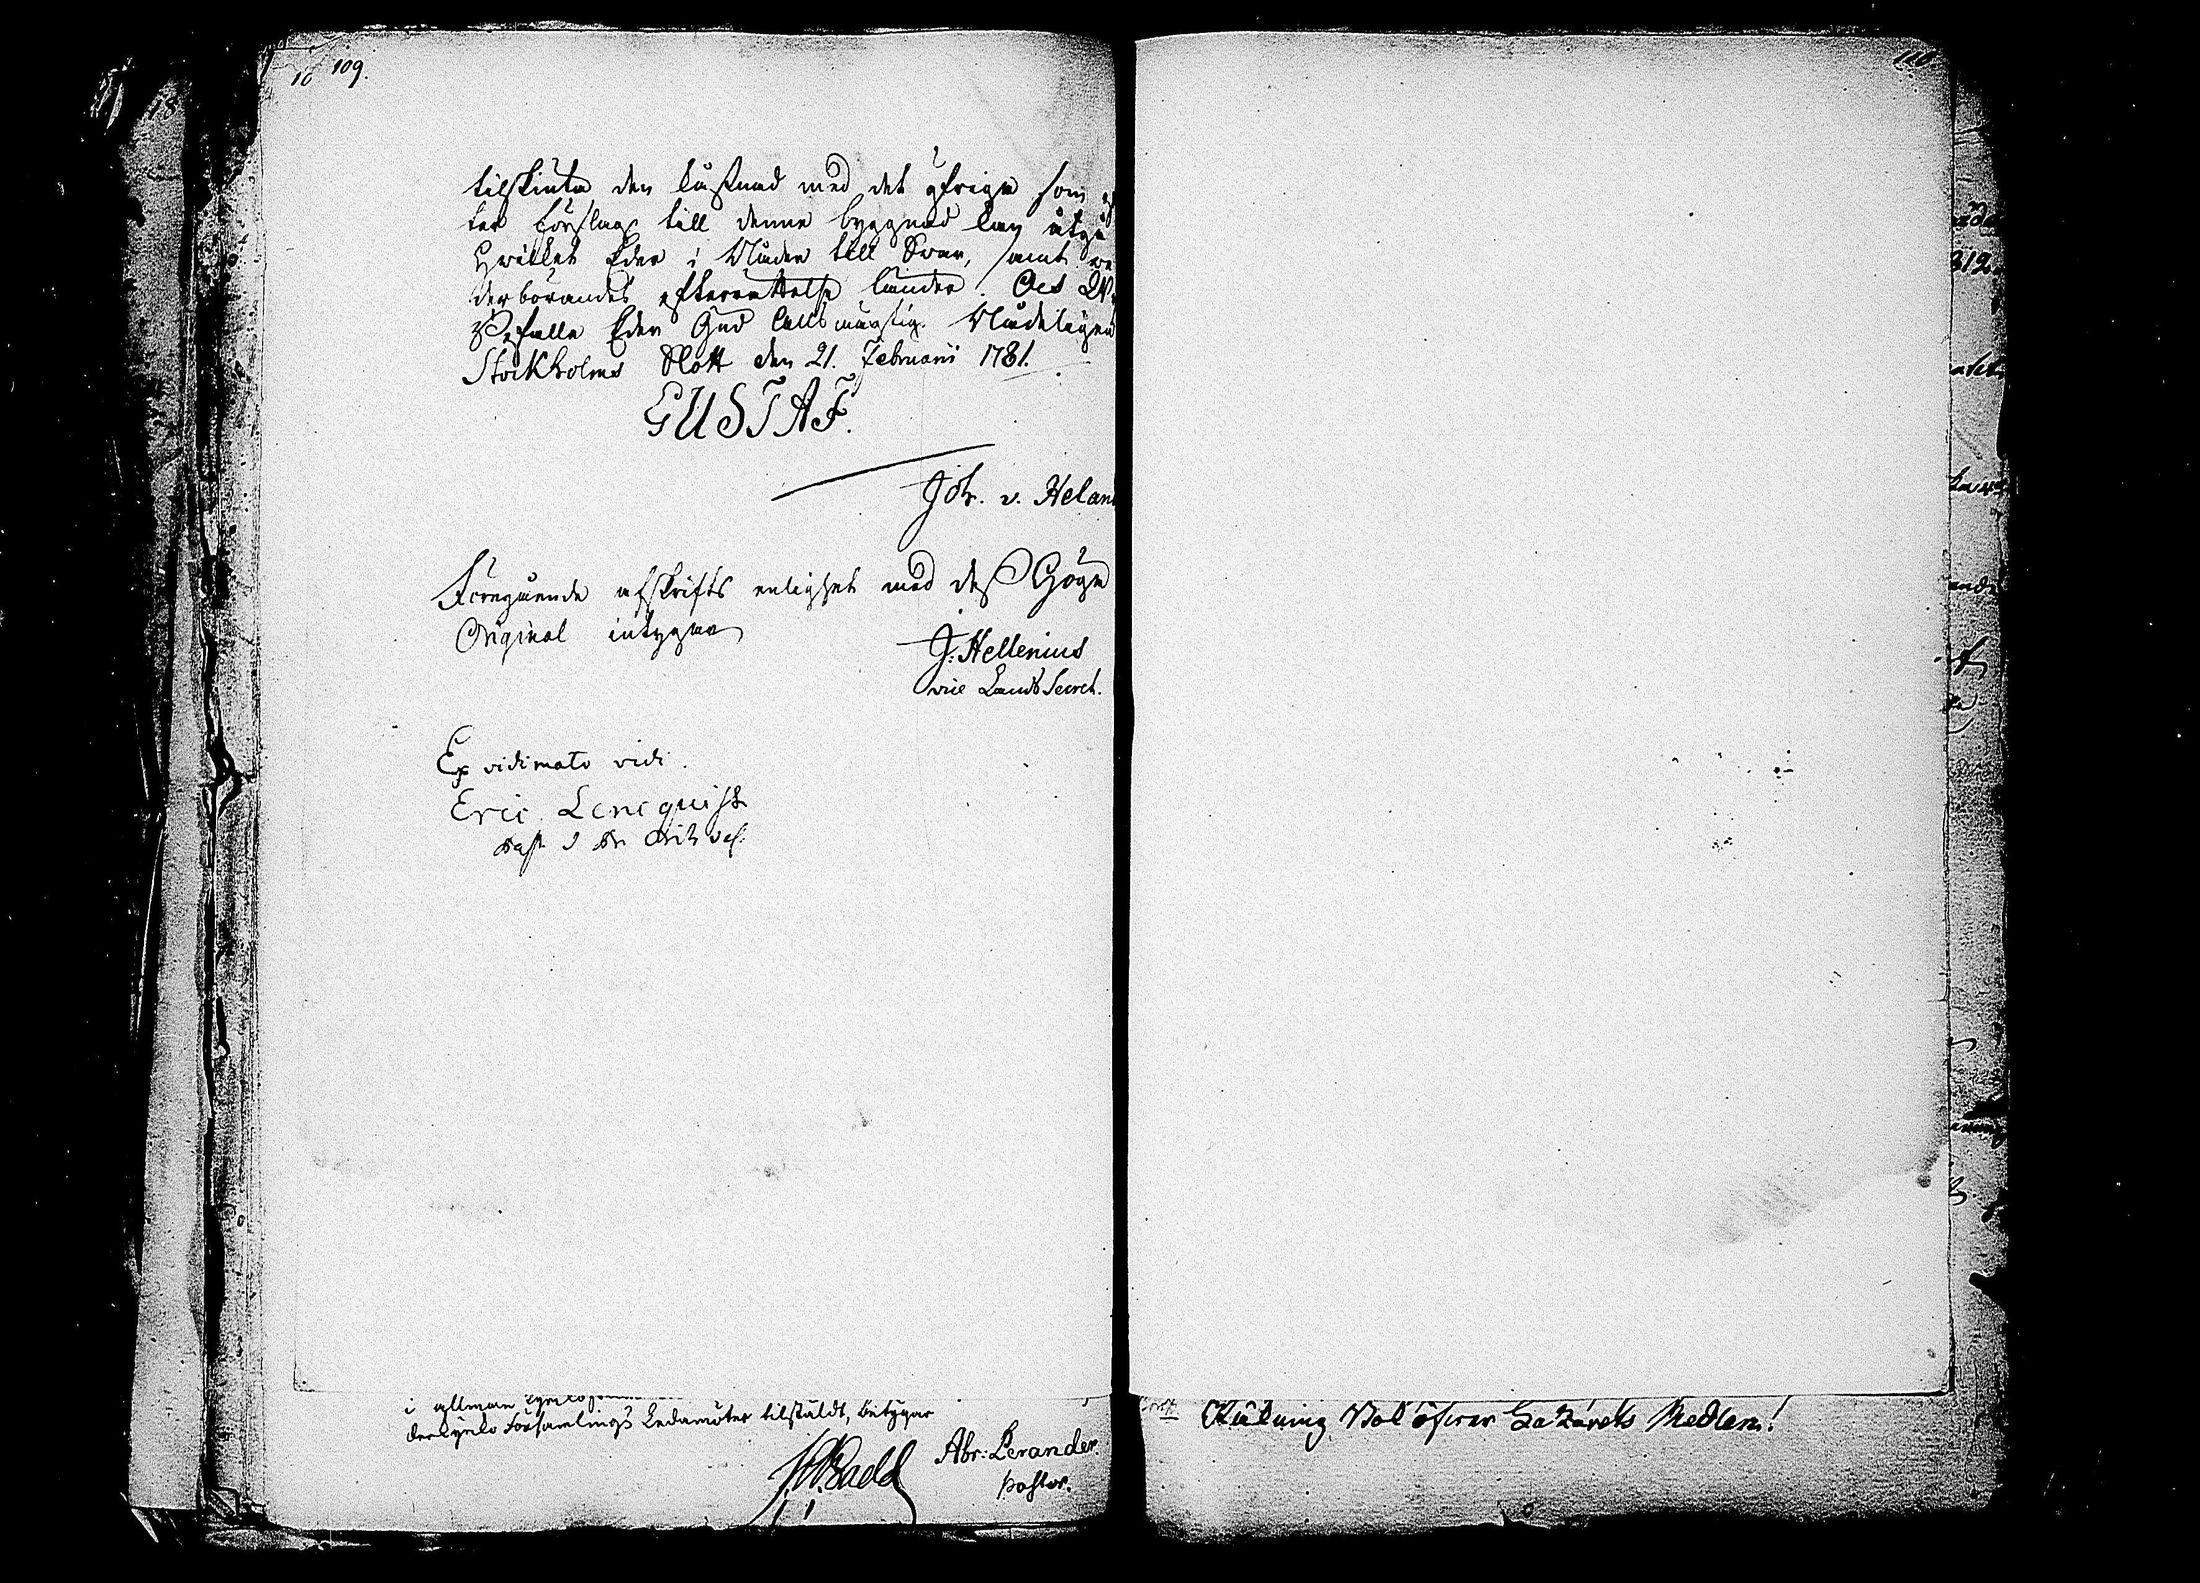 10 109.
tilskiuta den kåstnad med det öfriga som ef
ter förslag till denne byggnad kan utgå
Hvilket Eder i Nåder till Svar, samt ve
derbörandes efterrättelse länder. Och Wi
Befalle Eder Gud Allsmägtig. Nådeligen
Stockholms Slott den 21. Februarii 1781.
GUSTAF.
Joh. v. Helan
Föregående afskrifts enlighet med dess Höga
Original intygar
J: Hellenius
vice Lands Secret.
Ex vidimato vidi.
Eric Lencquist
Past
i allmän
Kyrko Församlings Ledamöter tilstäldt, betygar
Abr: Perander.
Pastor.
110
Räkning öfver Lazarets Medlem!